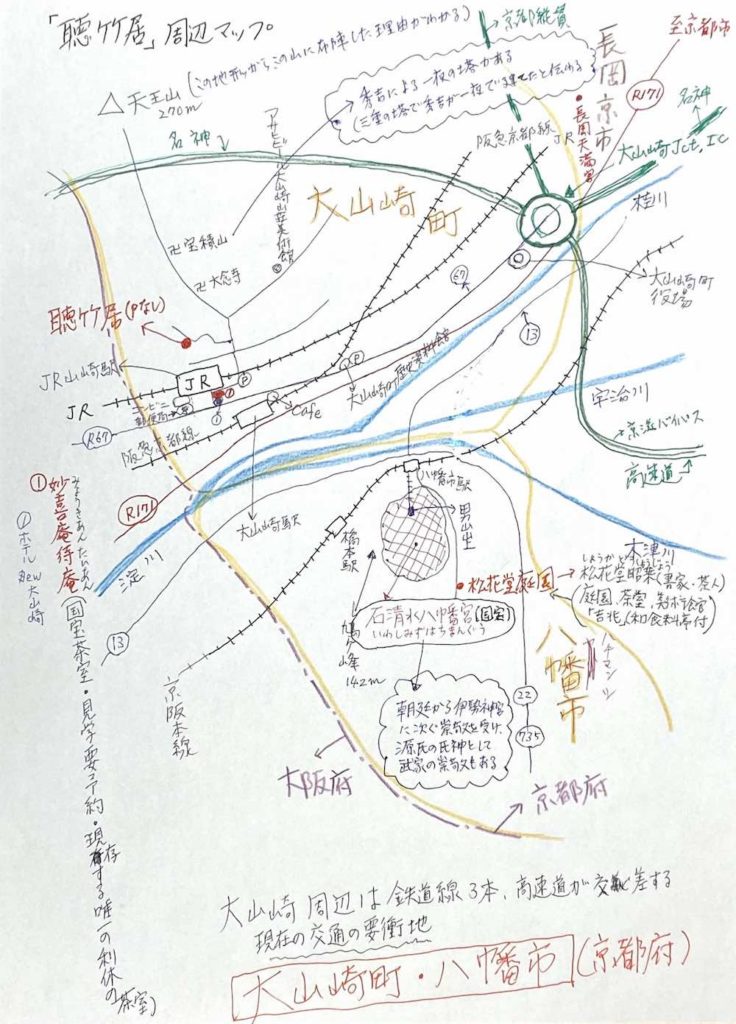 「聴竹居」周辺マップ
△天王山(この地形からこの山に布陣した理由がわかる)
270m
秀吉による一夜の塔がある
(三重の塔で秀吉が一夜で建てたと伝わる)
京都縦貫
長岡京市
至京都市
R171
名神
大山崎Jct, IC
・長岡天満宮
阪急京都線
JR
名神
アサヒビール大山崎山荘美術館
大山崎町
卍宝積山
卍大念寺
桂川
大山崎町
役場
聴竹居(Pなし)
JR山崎駅
JR
JR
コンビニ
郵便局
P
①
67
13
P
大山崎町歴史資料館
cafe
R67
阪急京都線
R171
大山崎駅
宇治川
京滋バイパス
高速道
八幡市駅
男山
橋本駅
木津川
・松花堂庭園
しょうかどうしょうじょう
松花堂昭乗(書家・茶人)
庭園、茶室、美術館
「吉兆」(和食料亭付)
石清水八幡宮(国宝)
いわしみずはちまんぐう
鳩ヶ峰
142m
八幡市
淀川
13
京阪本線
①妙喜庵待庵(国宝茶室・見学要予約・現存する唯一の利休の茶室)
みょうきあんたいあん
①ホテルNew大山崎
朝廷から伊勢神宮
に次ぐ崇敬を受け、
源氏の氏神として
武家の崇敬もある
22
735
大阪府
京都府
大山崎周辺は鉄道線3本、高速道が交差する
現在の交通の要衝地
大山崎町・八幡市(京都府)